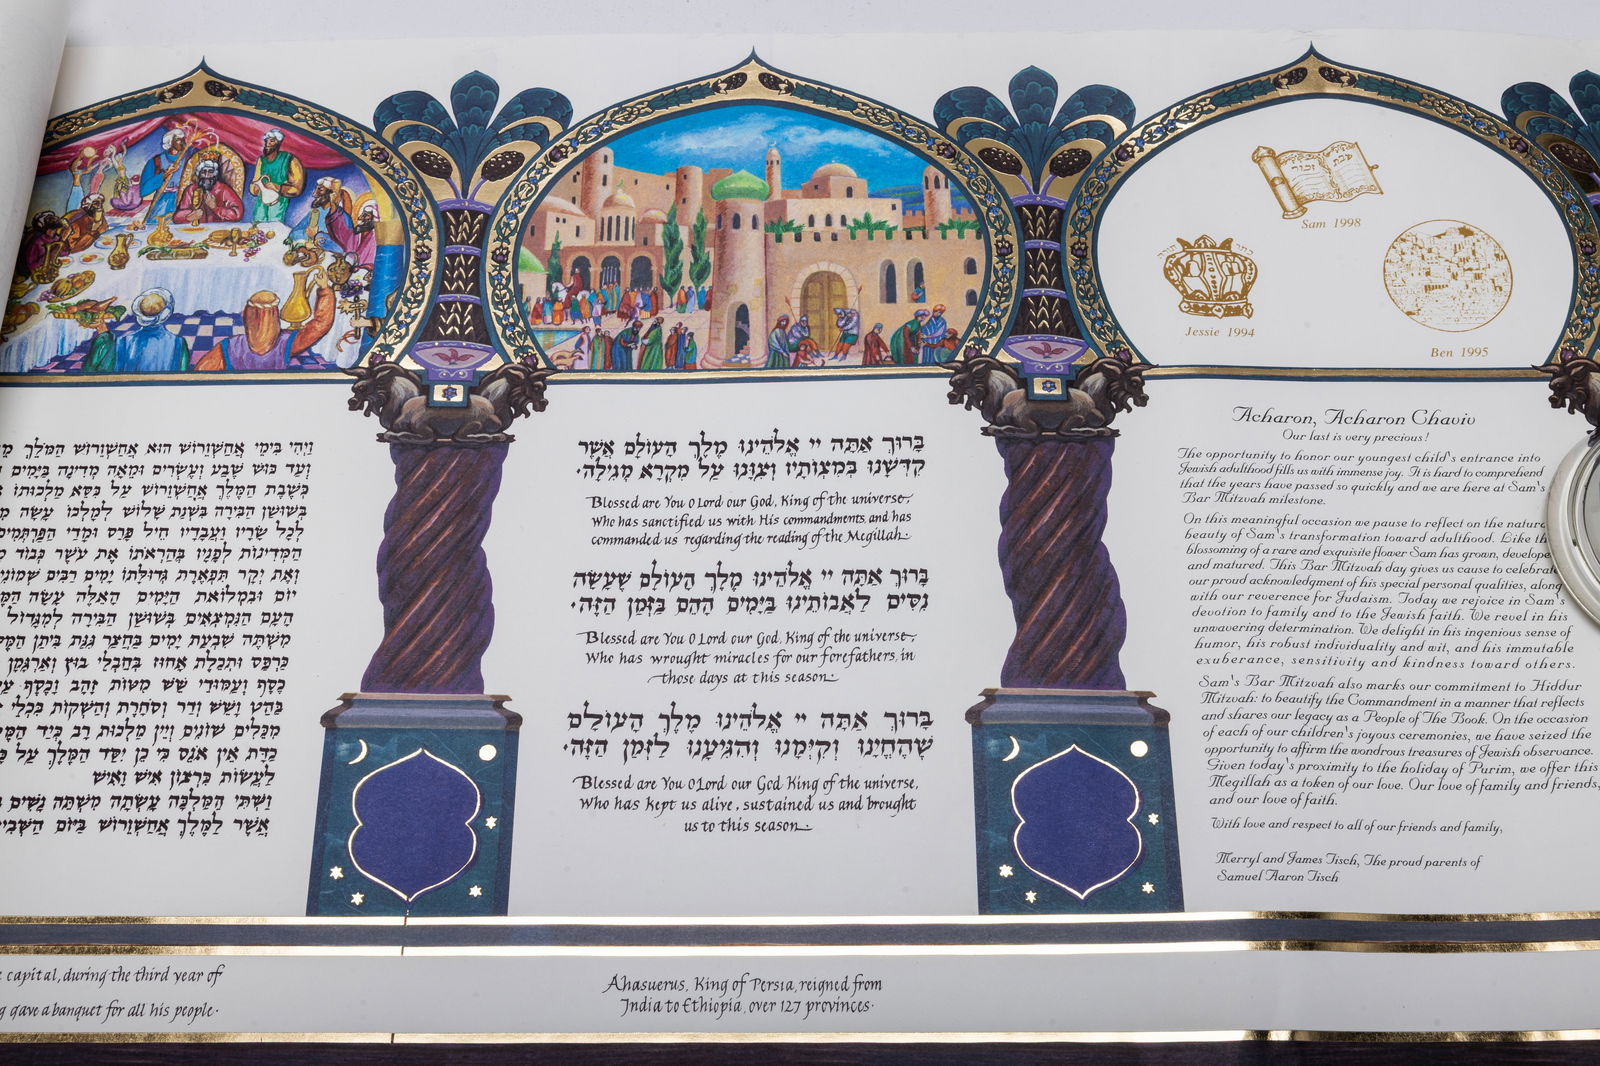 שבת זכור
Sam 1998
כתר תורה
Jessie 1994
Ben 1995
Acharon, Acharon Chaviv
Our last is very precious!
The opportunity to honor our youngest child's entrance into
Jewish adulthood fills us with immense joy. It is hard to comprehend
that the years have passed so quickly and we are here at Sam's
Bar Mitzvah milestone.
On this meaningful occasion we pause to reflect on the natural
beauty of Sam's transformation toward adulthood. Like the
blossoming of a rare and exquisite flower Sam has grown, develope
and matured. This Bar Mitzvah day gives us cause to celebrate
our proud acknowledgment of his special personal qualities, along
with our reverence for Judaism. Today we rejoice in Sam's
devotion to family and to the Jewish faith. We revel in his
unwavering determination. We delight in his ingenious sense of
humor, his robust individuality and wit, and his immutable
exuberance, sensitivity and kindness toward others.
Sam's Bar Mitzvah also marks our commitment to Hiddur
Mitzvah: to beautify the Commandment in a manner that reflects
and shares our legacy as a People of The Book. On the occasion
of each of our children's joyous ceremonies, we have seized the
opportunity to affirm the wondrous treasures of Jewish observance.
Given today's proximity to the holiday of Purim, we offer this
Megillah as a token of our love. Our love of family and friends,
and our love of faith.
With love and respect to all of our friends and family,
Merryl and James Tisch, The proud parents of
Samuel Aaron Tisch
בָּרוּךְ אַתָּה יי אֱלֹהֵינוּ מֶלֶךְ הָעוֹלָם אֲשֶׁר
קִדְּשָׁנוּ בְּמִצְוֹתָיו וְצִוָּנוּ עַל מִקְרָא מְגִילָה.
Blessed are You O Lord our God, King of the universe,
Who has sanctified us with His commandments, and has
commanded us regarding the reading of the Megillah.
בָּרוּךְ אַתָּה יי אֱלֹהֵינוּ מֶלֶךְ הָעוֹלָם שֶׁעָשָׂה
נִסִּים לַאֲבוֹתֵינוּ בַּיָּמִים הָהֵם בַּזְּמַן הַזֶּה.
Blessed are You O Lord our God, King of the universe,
Who has wrought miracles for our forefathers, in
those days at this season.
בָּרוּךְ אַתָּה יי אֱלֹהֵינוּ מֶלֶךְ הָעוֹלָם
שֶׁהֶחֱיָנוּ וְקִיְּמָנוּ וְהִגִּיעָנוּ לַזְּמַן הַזֶּה.
Blessed are You O Lord our God King of the universe,
Who has kept us alive, sustained us and brought
us to this season.
Ahasuerus, King of Persia, reigned from
India to Ethiopia, over 127 provinces.
וַיְהִי בִּימֵי אֲחַשְׁוֵרוֹשׁ הוּא אֲחַשְׁוֵרוֹשׁ הַמֹּלֵךְ
וְעַד כּוּשׁ שֶׁבַע וְעֶשְׂרִים וּמֵאָה מְדִינָה בַּיָּמִים
כְּשֶׁבֶת הַמֶּלֶךְ אֲחַשְׁוֵרוֹשׁ עַל כִּסֵּא מַלְכוּתוֹ
בְּשׁוּשַׁן הַבִּירָה בִּשְׁנַת שָׁלוֹשׁ לְמָלְכוֹ עָשָׂה
לְכָל שָׂרָיו וַעֲבָדָיו חֵיל פָּרַס וּמָדַי הַפַּרְתְּמִים
הַמְּדִינוֹת לְפָנָיו בְּהַרְאֹתוֹ אֶת עֹשֶׁר כְּבוֹד
וְאֶת יְקָר תִּפְאֶרֶת גְּדוּלָּתוֹ יָמִים רַבִּים שְׁמוֹנִי
יוֹם וּבִמְלוֹאת הַיָּמִים הָאֵלֶּה עָשָׂה
הָעָם הַנִּמְצְאִים בְּשׁוּשַׁן הַבִּירָה לְמִגָּדוֹל
מִשְׁתֶּה שִׁבְעַת יָמִים בַּחֲצַר גִּנַּת בִּיתַן
כַּרְפַּס וּתְכֵלֶת אָחוּז בְּחַבְלֵי בוּץ וְאַרְגָּמָן
כֶסֶף וְעַמּוּדֵי שֵׁשׁ מִטּוֹת זָהָב וָכֶסֶף
בַּהַט וָשֵׁשׁ וְדַר וְסֹחָרֶת וְהַשְׁקוֹת בִּכְלֵי
מִכֵּלִים שׁוֹנִים וְיֵין מַלְכוּת רָב כְּיַד
כַדָּת אֵין אֹנֵס כִּי כֵן יִסַּד הַמֶּלֶךְ עַל
לַעֲשׂוֹת כִּרְצוֹן אִישׁ וָאִישׁ
וַשְׁתִּי הַמַּלְכָּה עָשְׂתָה מִשְׁתֵּה נָשִׁים
אֲשֶׁר לַמֶּלֶךְ אֲחַשְׁוֵרוֹשׁ בַּיּוֹם
capital, during the third year of
gave a banquet for all his people.